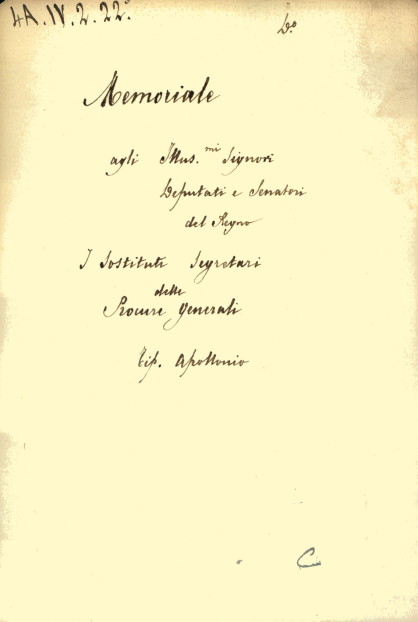 4A.IV.2.22.
D.º
Memoriale
agli Illus.mi Signori
Deputati e Senatori
del Regno
I Sostituti Segretari
delle
Procure Generali
Tip. Apollonio
C